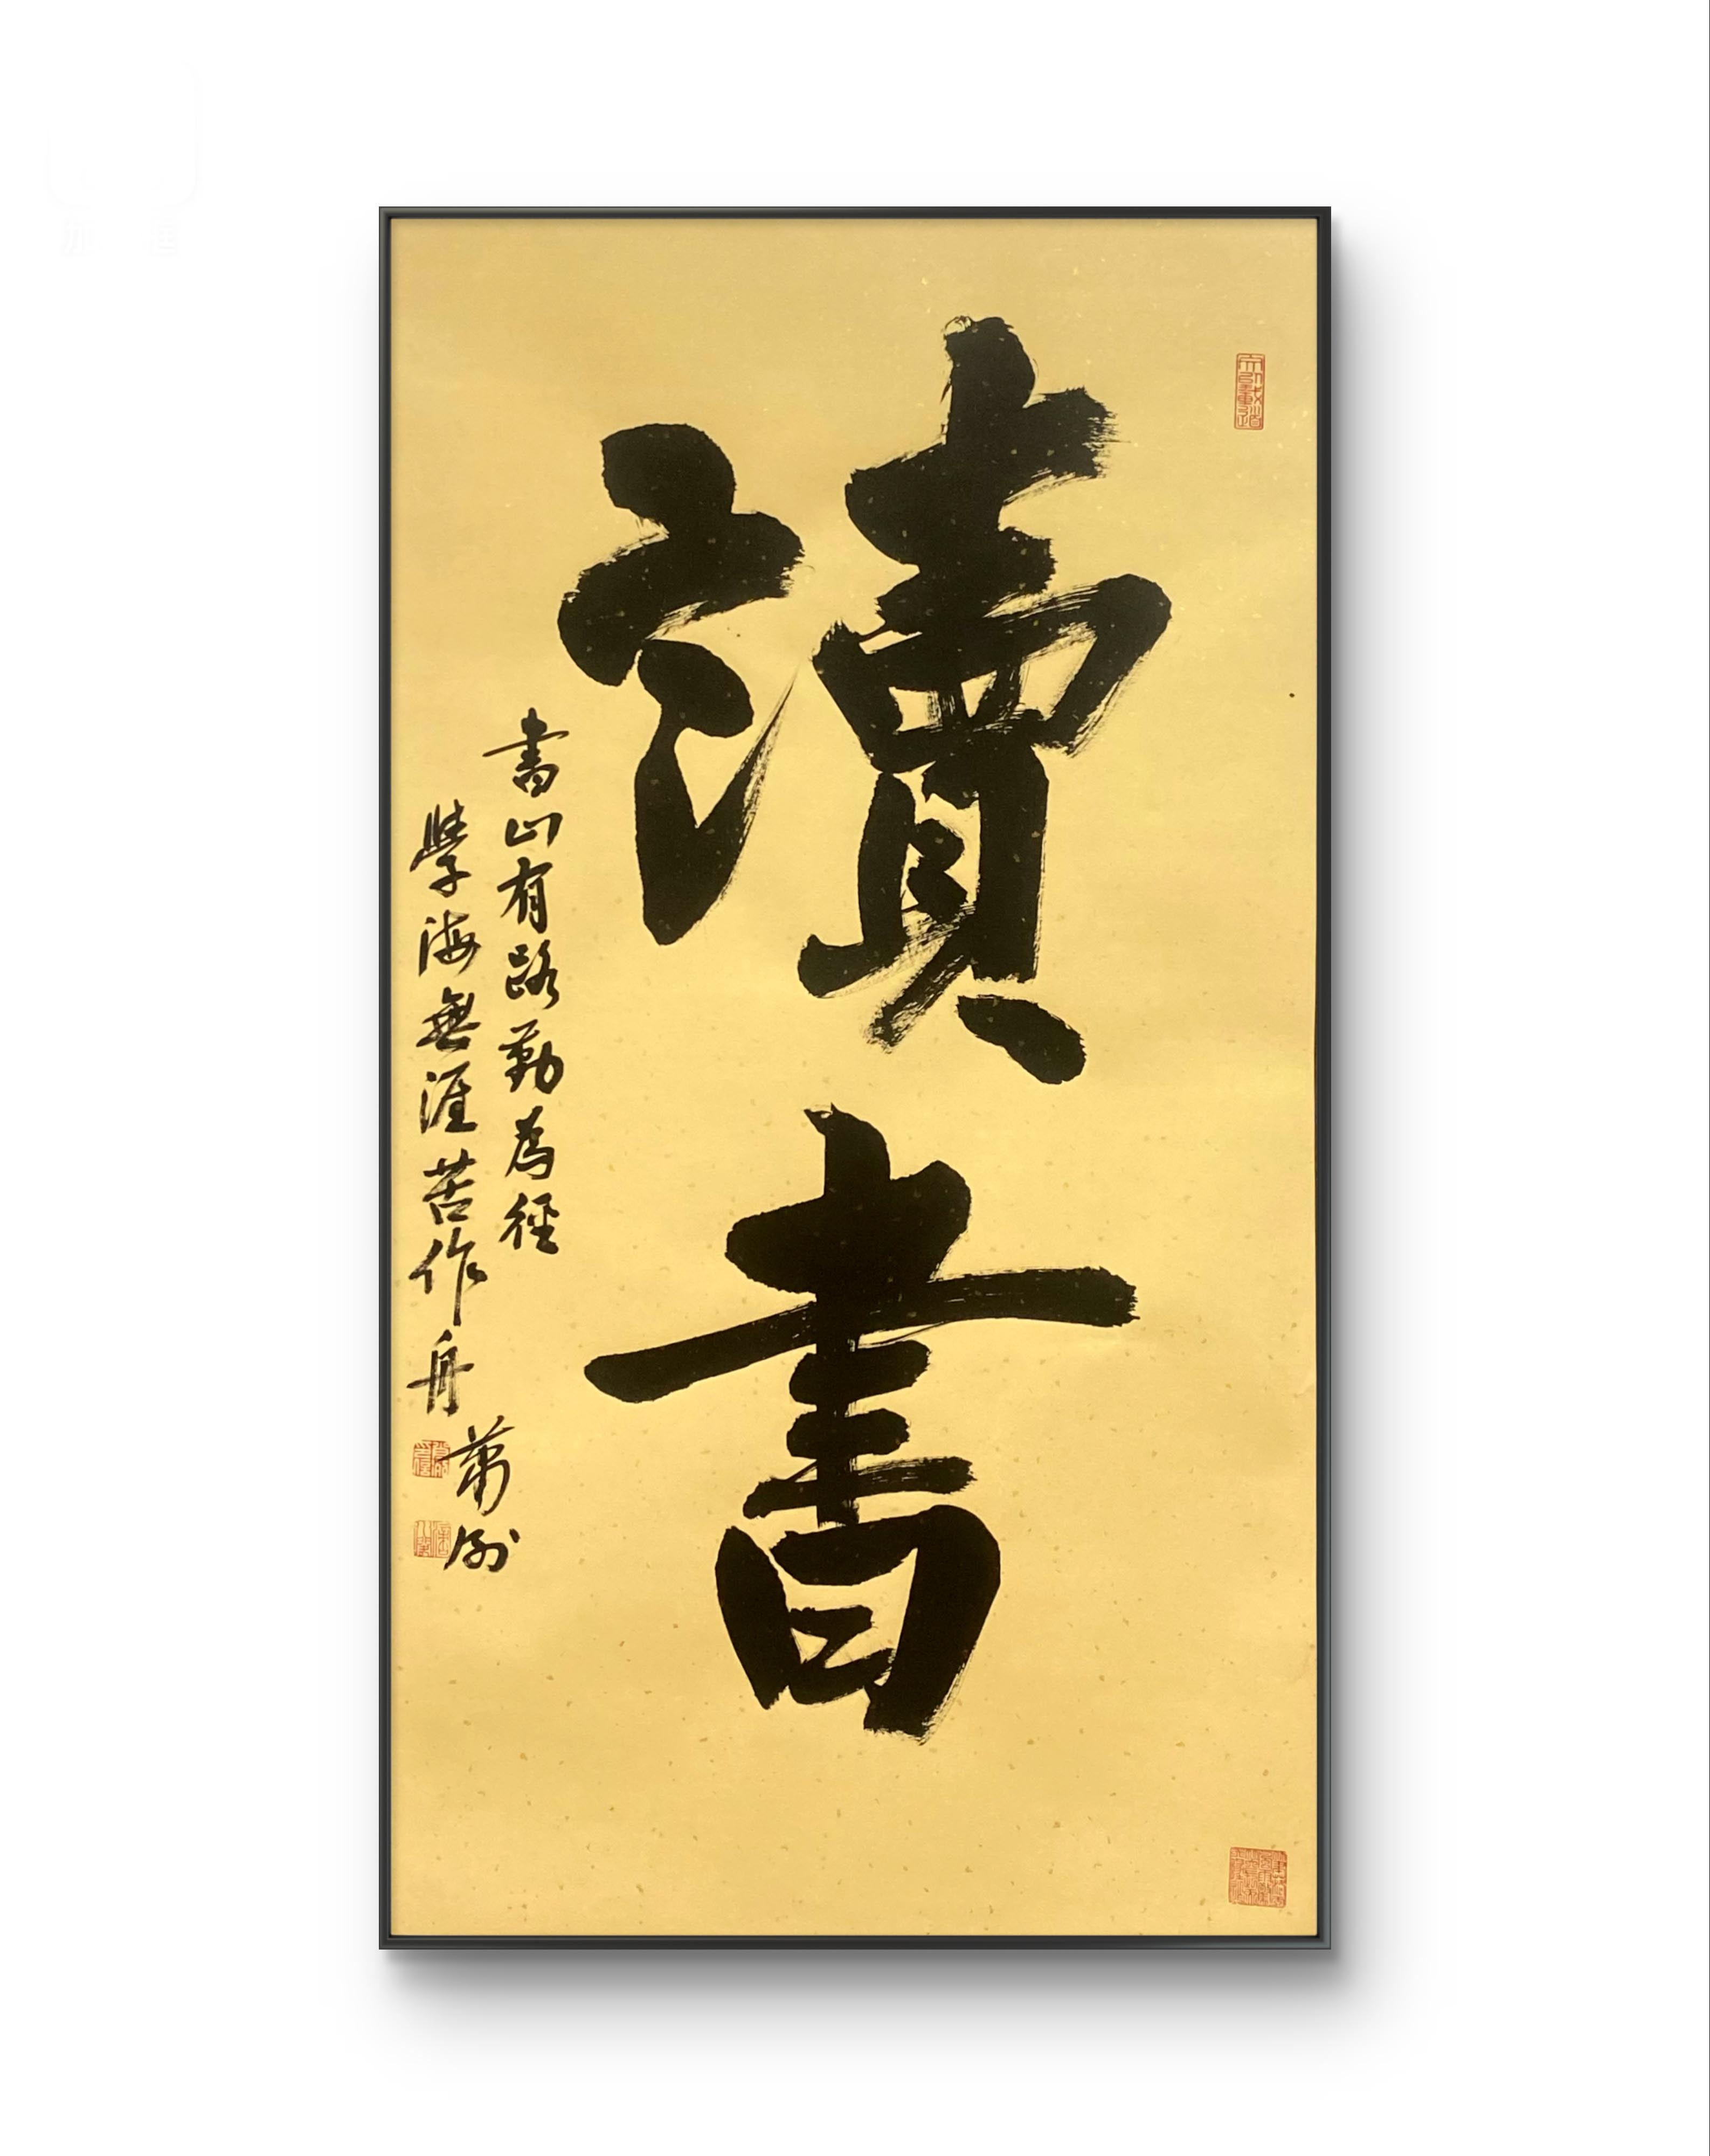 讀書
書山有路勤為徑
學海無涯苦作舟